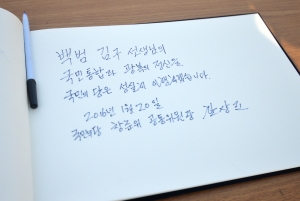 백범 김구 선생님의
국민통합과 광복의 정신을
국민의당은 성실히 이행하겠습니다.
2016년 1월 20일
국민의당 창준위 공동위원장